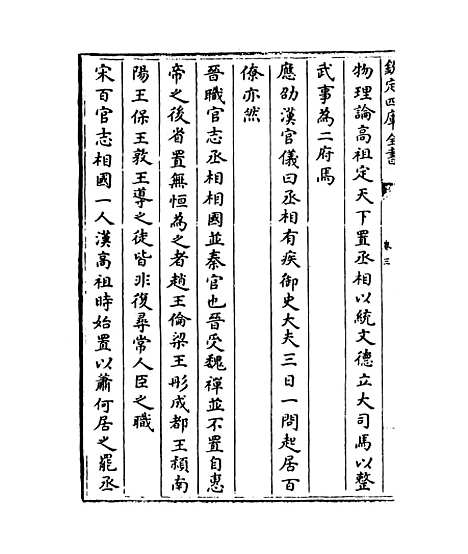 欽定四庫全書
卷三
物理論高祖定天下置丞相以統文德立大司馬以整
武事為二府焉
應劭漢官儀曰丞相有疾御史大夫三日一問起居百
僚亦然
晉職官志丞相相國並秦官也晉受魏禪並不置自惠
帝之後省置無恒為之者趙王倫梁王肜成都王穎南
陽王保王敦王導之徒皆非復尋常人臣之職
宋百官志相國一人漢高祖時始置以蕭何居之罷丞